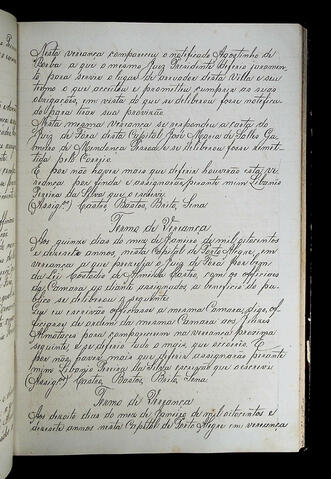 Nesta vereança compareceu o notificado Agostinho de
Borba a que o mesmo Juiz Presidente deferio juramen-
to, para servir o lugar de arruador desta Villa e seu
termo o que aceitou e prometteu cumprir as suas
obrigações, em vista do que se deliberou fosse notifica-
do para tirar sua provisão.
Nesta mesma vereança se respondeu a carta do
Juiz de Fora desta Capital, José Maria de Salles Ga-
meiro de Mendonça Pessanha e se deliberou fosse remet-
tida pelo Correio.
E por não haver mais que deferir houverão esta ve-
reança por finda e assignarão, perante mim Libanio
Pereira da Silva que escrevi
(Assig.ºs) Castro, Bastos, Brito, Sena
Termo de Vereança
Aos quinze dias do mez de Janeiro de mil oitocentos
e dezoito annos, nesta Capital de Porto Alegre, em
vereança a que presidio o Juiz de Fora por Ley
da Lei Custodio de Almeida Castro, com os officiaes
da Camara ao diante assignados, a beneficio do pu-
blico se deliberou o seguinte
officiaes a mesma Camara, digo, of-
de ordem da mesma Camara aos Juizes
Almotaces para comparecerem na vereança proxima
seguinte e se deferio tudo o mais que occorreo. E
por não haver mais que deferir assignarão perante
mim Libanio Pereira da Silva escrivão que escrevi
(Assig.ºs) Castro, Bastos, Brito, Sena
Termo de Vereança
Aos dezoito dias do mez de Janeiro de mil oitocentos e
dezoito annos nesta Capital de Porto Alegre em vereança